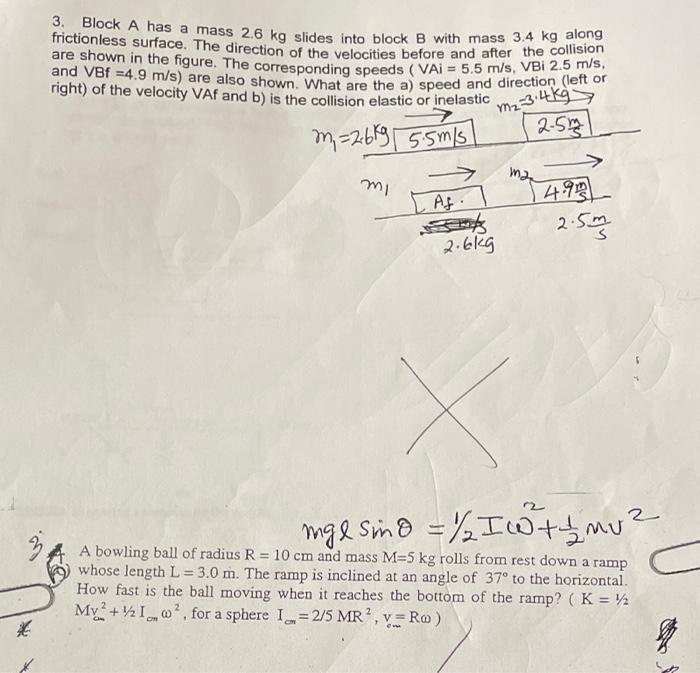 3. Block A has a mass 2.6 kg slides into block B with mass 3.4 kg along
frictionless surface. The direction of the velocities before and after the collision
are shown in the figure. The corresponding speeds ( VAi = 5.5 m/s, VBi 2.5 m/s,
and VBf =4.9 m/s) are also shown. What are the a) speed and direction (left or
right) of the velocity VAf and b) is the collision elastic or inelastic
m₂=3.4kg
m₁=2.6kg 5.5m/s 2.5m/s
m₁ Af. m₂ 4.9m/s
2.6kg 2.5m/s
mgl sinθ = ½Iω²+½mv²
3
A bowling ball of radius R = 10 cm and mass M=5 kg rolls from rest down a ramp
whose length L = 3.0 m. The ramp is inclined at an angle of 37° to the horizontal.
How fast is the ball moving when it reaches the bottom of the ramp? ( K = ½
Mv²cm + ½ Icm ω², for a sphere Icm = 2/5 MR², vcm = Rω )